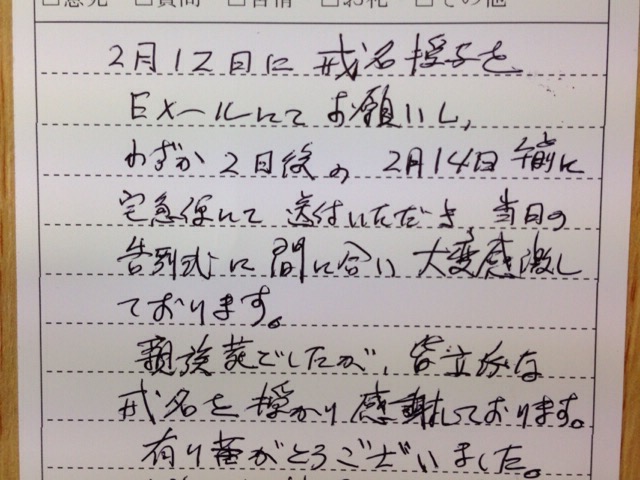 □意見 □質問 □苦情 □お礼 □その他
2月12日に 戒名授与を
Eメールにて お願いし、
わずか2日後の 2月14日 午前に
宅急便にて 送付いただき、当日の
告別式に 間に合い 大変感激し
ております。
親族葬でしたが、皆立派な
戒名を 授かり 感謝しております。
有り難がとうございました。